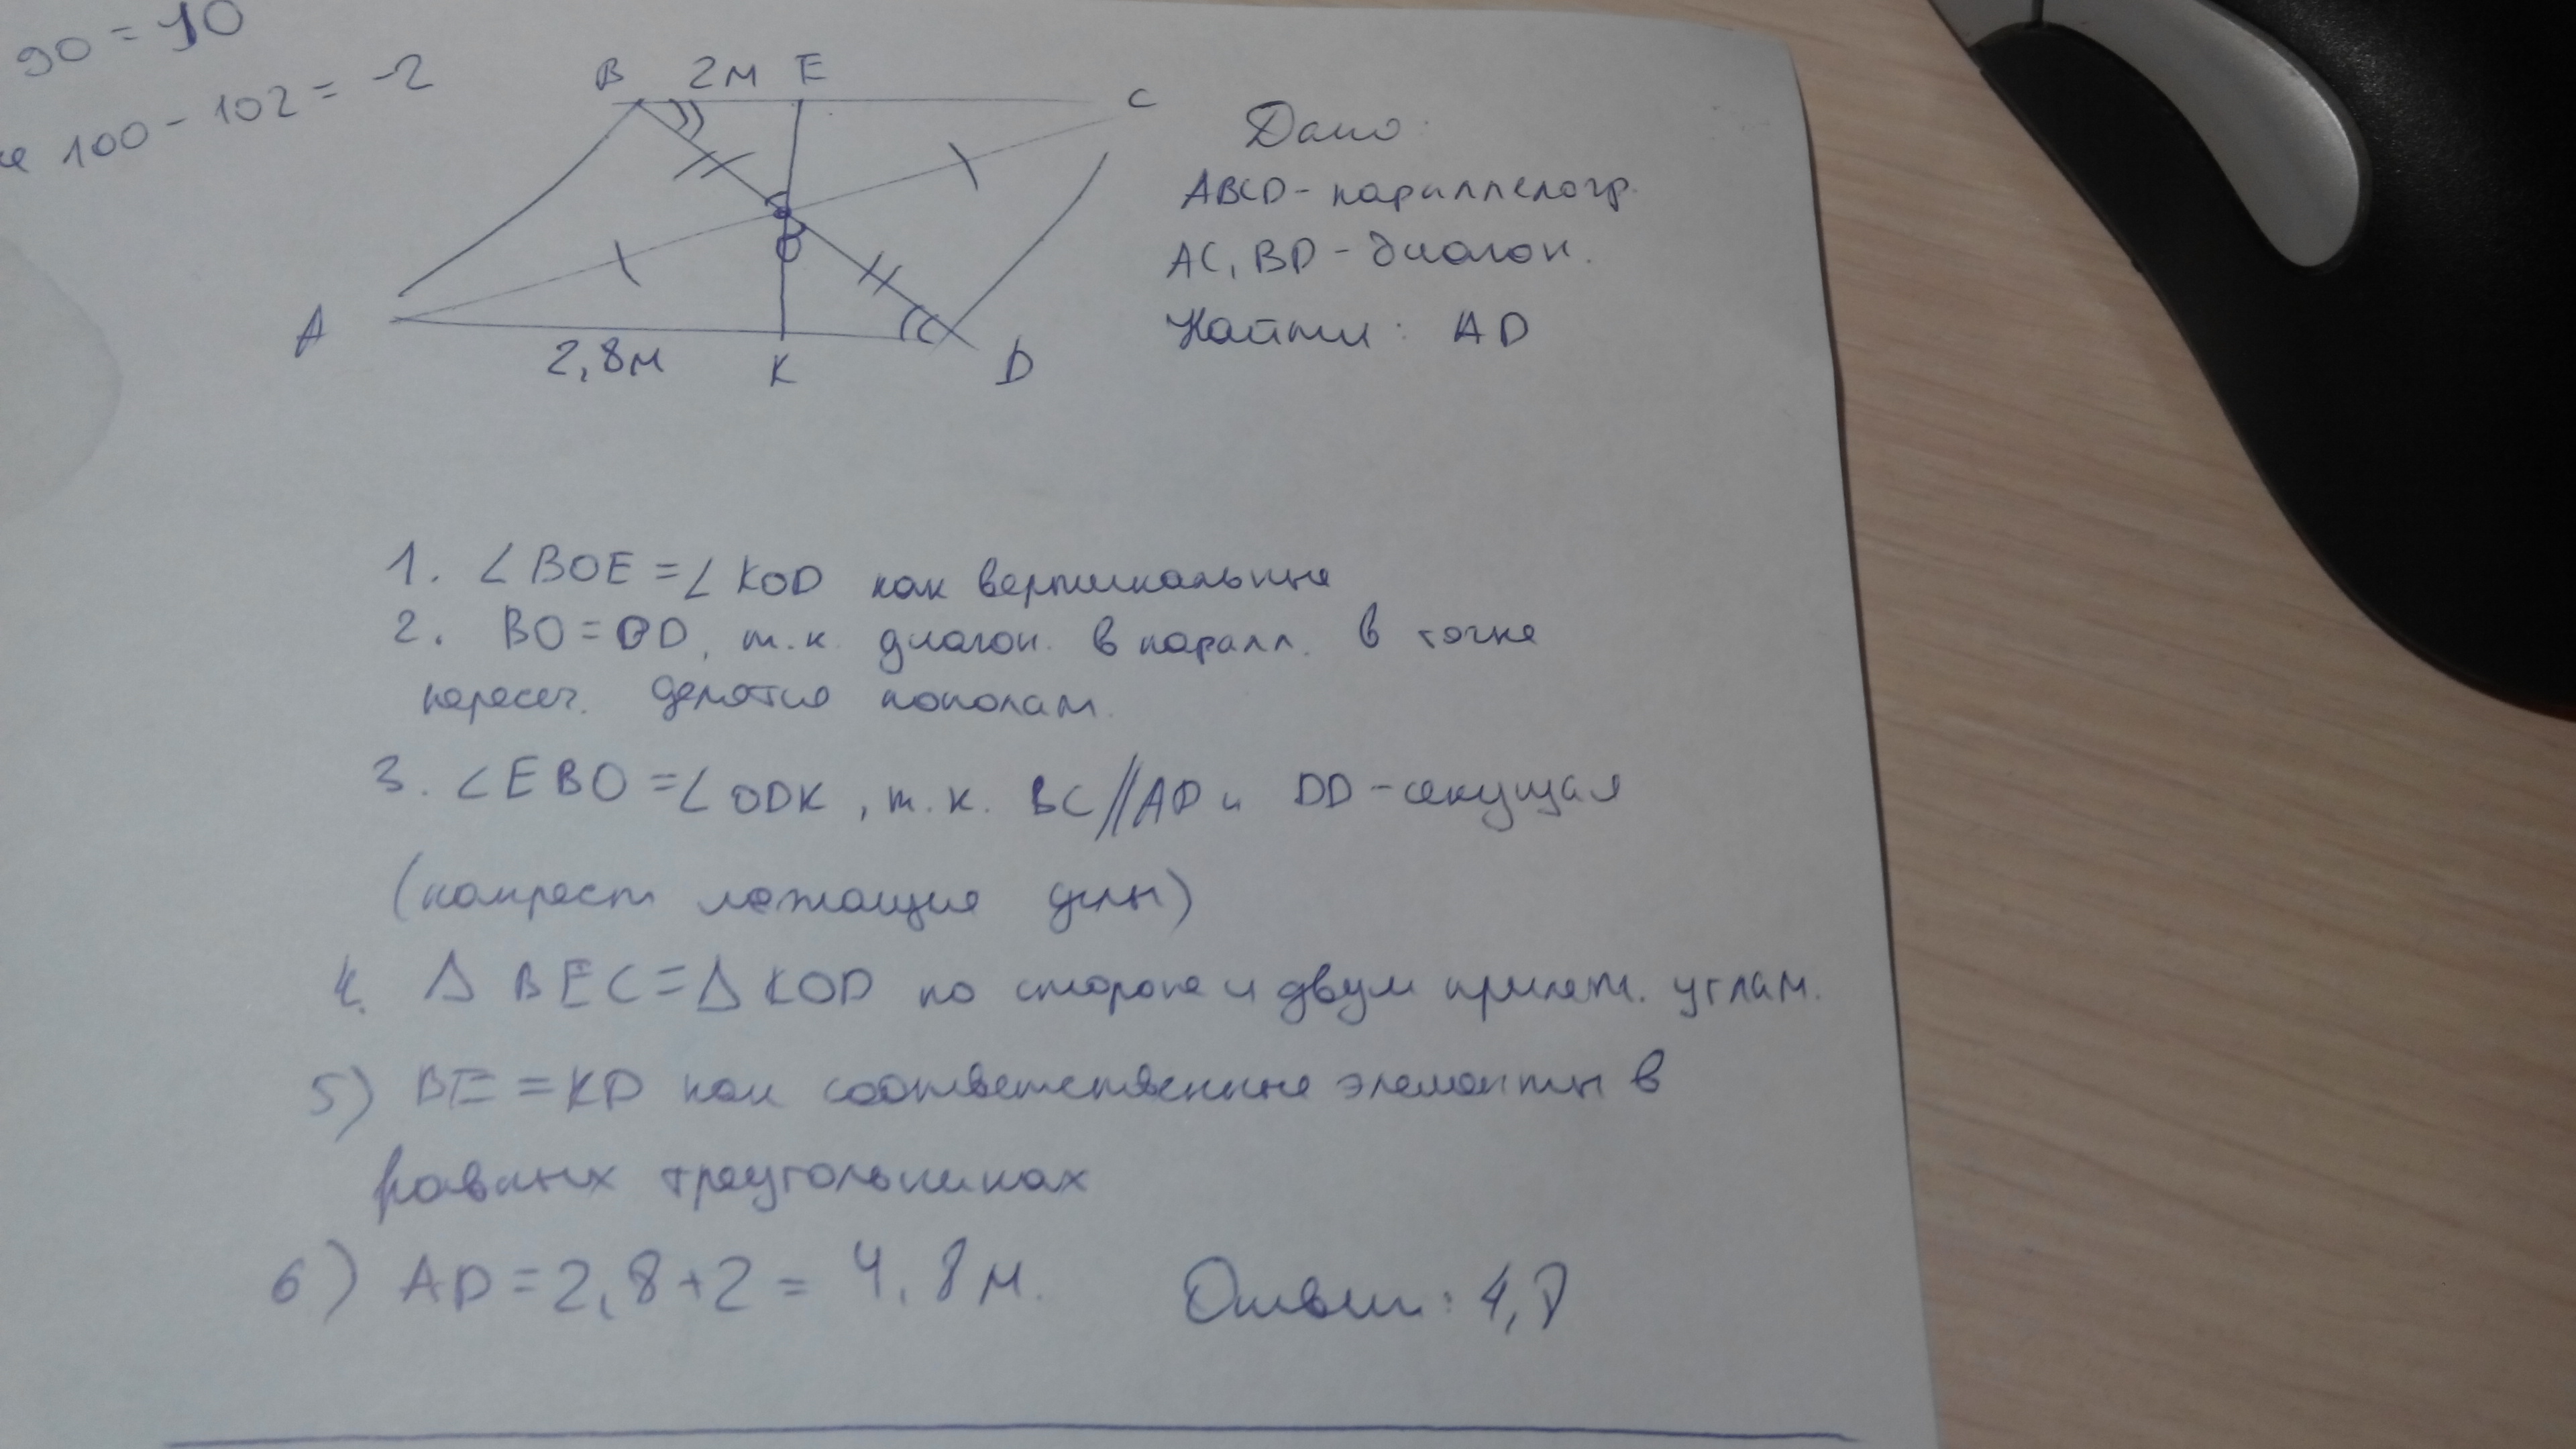 90 = 10
100 - 102 = -2
B 2м E C
O
A 2,8м K D
Дано
ABCD - параллелогр.
AC, BD - диагон.
Найти: AD
1. ∠BOE = ∠KOD как вертикальные
2. BO = OD, т.к. диагон. в паралл. в точке
пересеч. делятся пополам.
3. ∠EBO = ∠ODK, т.к. BC // AD и DD - секущая
(накрест лежащие углы)
4. Δ BEC = Δ KOD по стороне и двум прилеж. углам.
5) BE = KD как соответственные элементы в
равных треугольниках
6) AD = 2,8 + 2 = 4,8 м. Ответ: 4,8